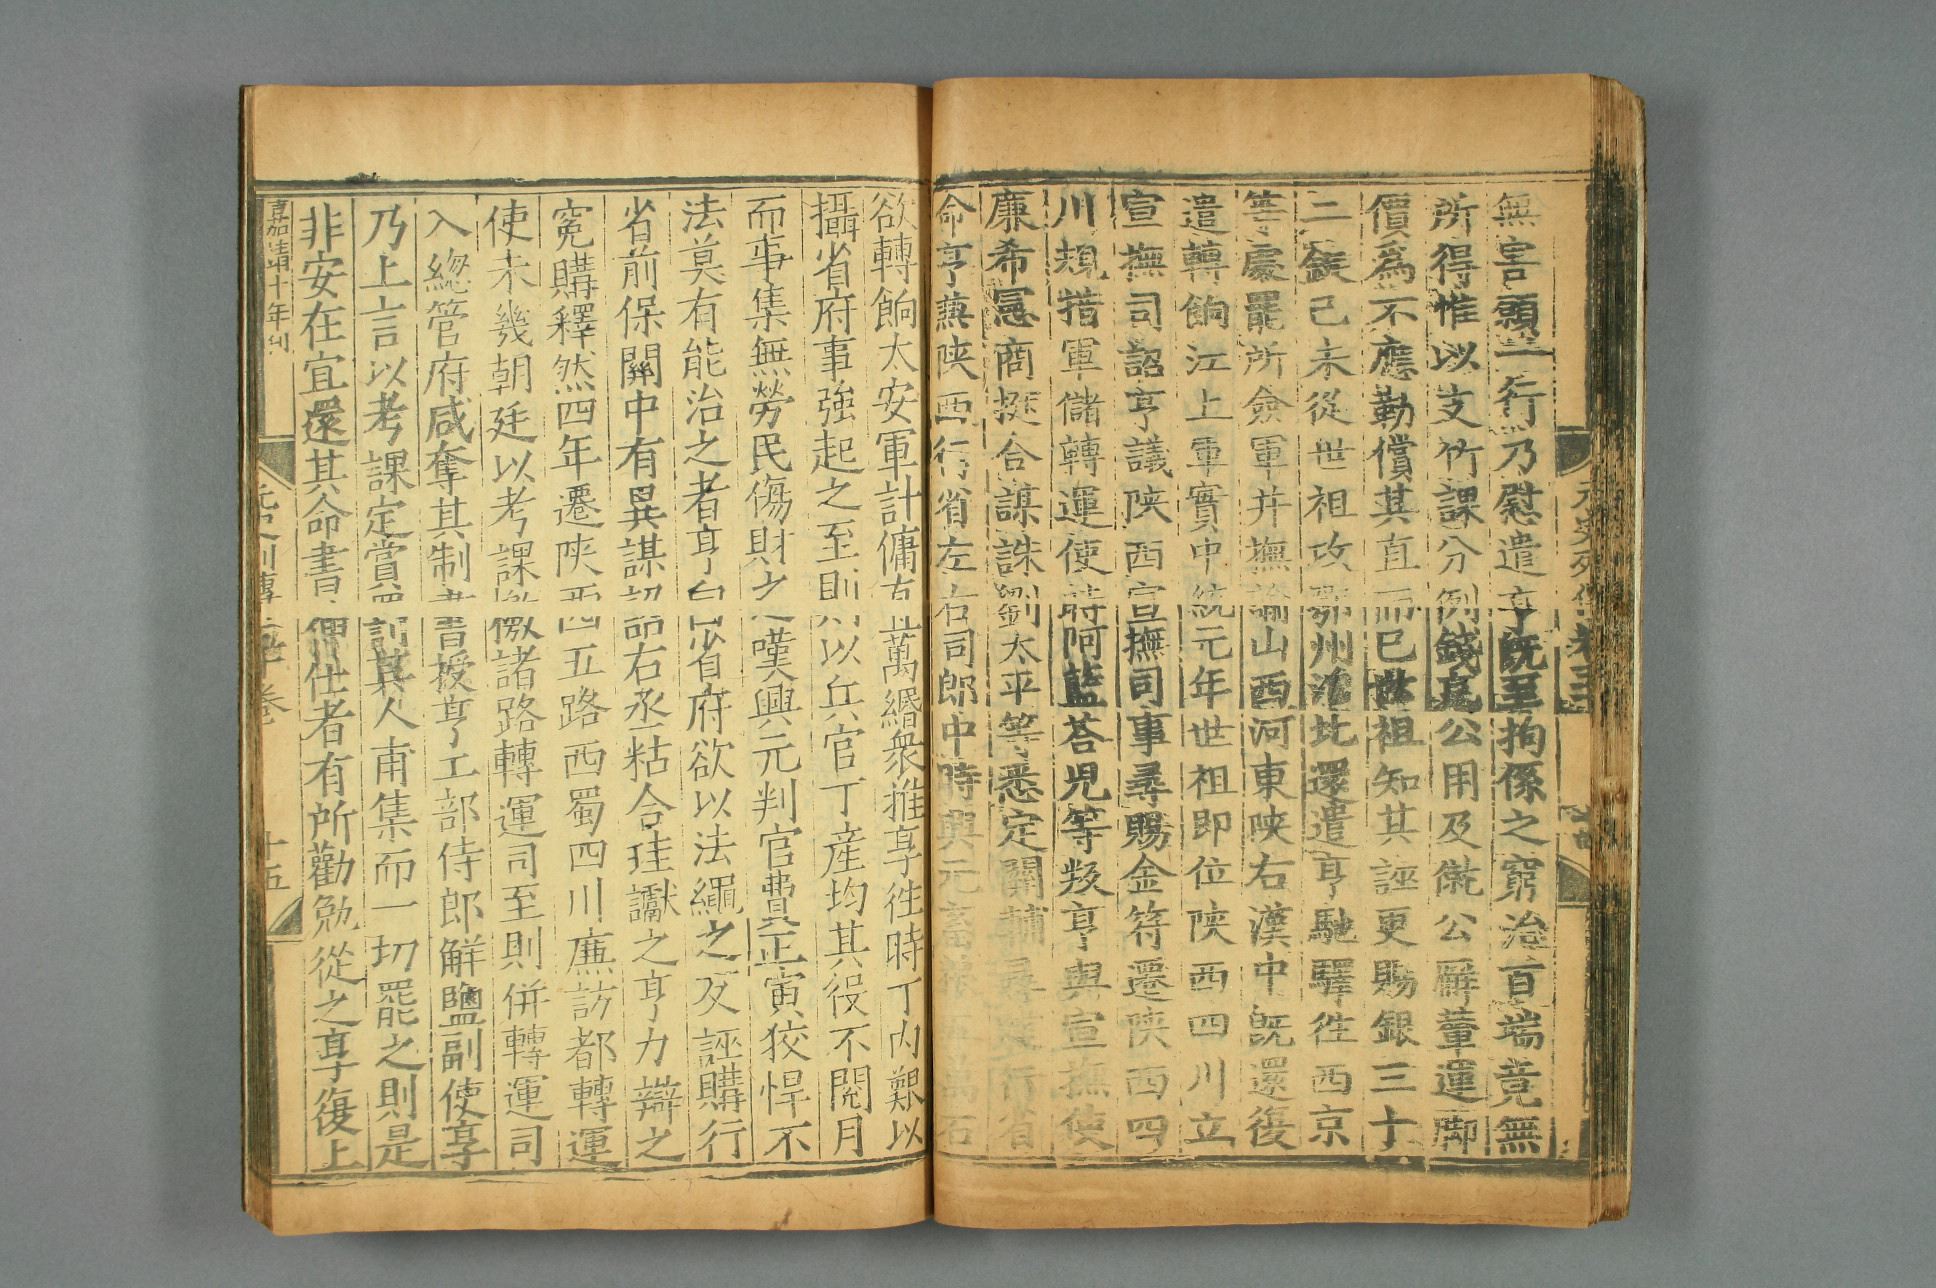 無害頭一行乃慰遣亨既至拘係之窮治百端竟無
所得惟以支竹課分例錢充公用及僦公廨輦運脚
價爲不應勒償其直而已世祖知其誣更賜銀三十
二鋌己未從世祖攻鄂州洎北還遣亨馳驛徃西京
等處罷所僉軍并撫諭山西河東陜右漢中既還復
遣轉餉江上軍實中統元年世祖即位陜西四川立
宣撫司詔亨議陜西宣撫司事尋賜金符遷陜西四
川規措軍儲轉運使時阿藍荅児等叛亨與宣撫使
廉希憲商挺合謀誅劉太平等悉定關輔尋改行省
命亨兼陜西行省左右司郎中時興元 石
欲轉餉太安軍計傭直萬緡衆推亨徃時丁内艱以
攝省府事強起之至則以兵官丁産均其役不閱月
而事集無勞民傷財之嘆興元判官費正寅狡悍不
法莫有能治之者亨白省府欲以法繩之反誣購行
省前保關中有異謀詔右丞粘合珪讞之亨力辯之
寃購釋然四年遷陜西四五路西蜀四川廉訪都轉運
使未幾朝廷以考課檄諸路轉運司至則併轉運司
入總管府咸奪其制書授亨工部侍郎觧鹽副使亨
乃上言以考課定賞罰其人甫集而一切罷之則是
非安在宜還其命書俾仕者有所勸勉從之亨復上
嘉靖十年刋
元史列傳五十卷
十五